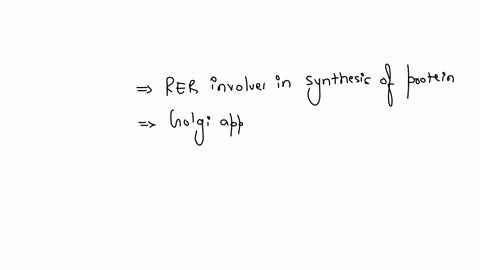 ⇒ RER involves in synthesis of protein
⇒ Golgi app